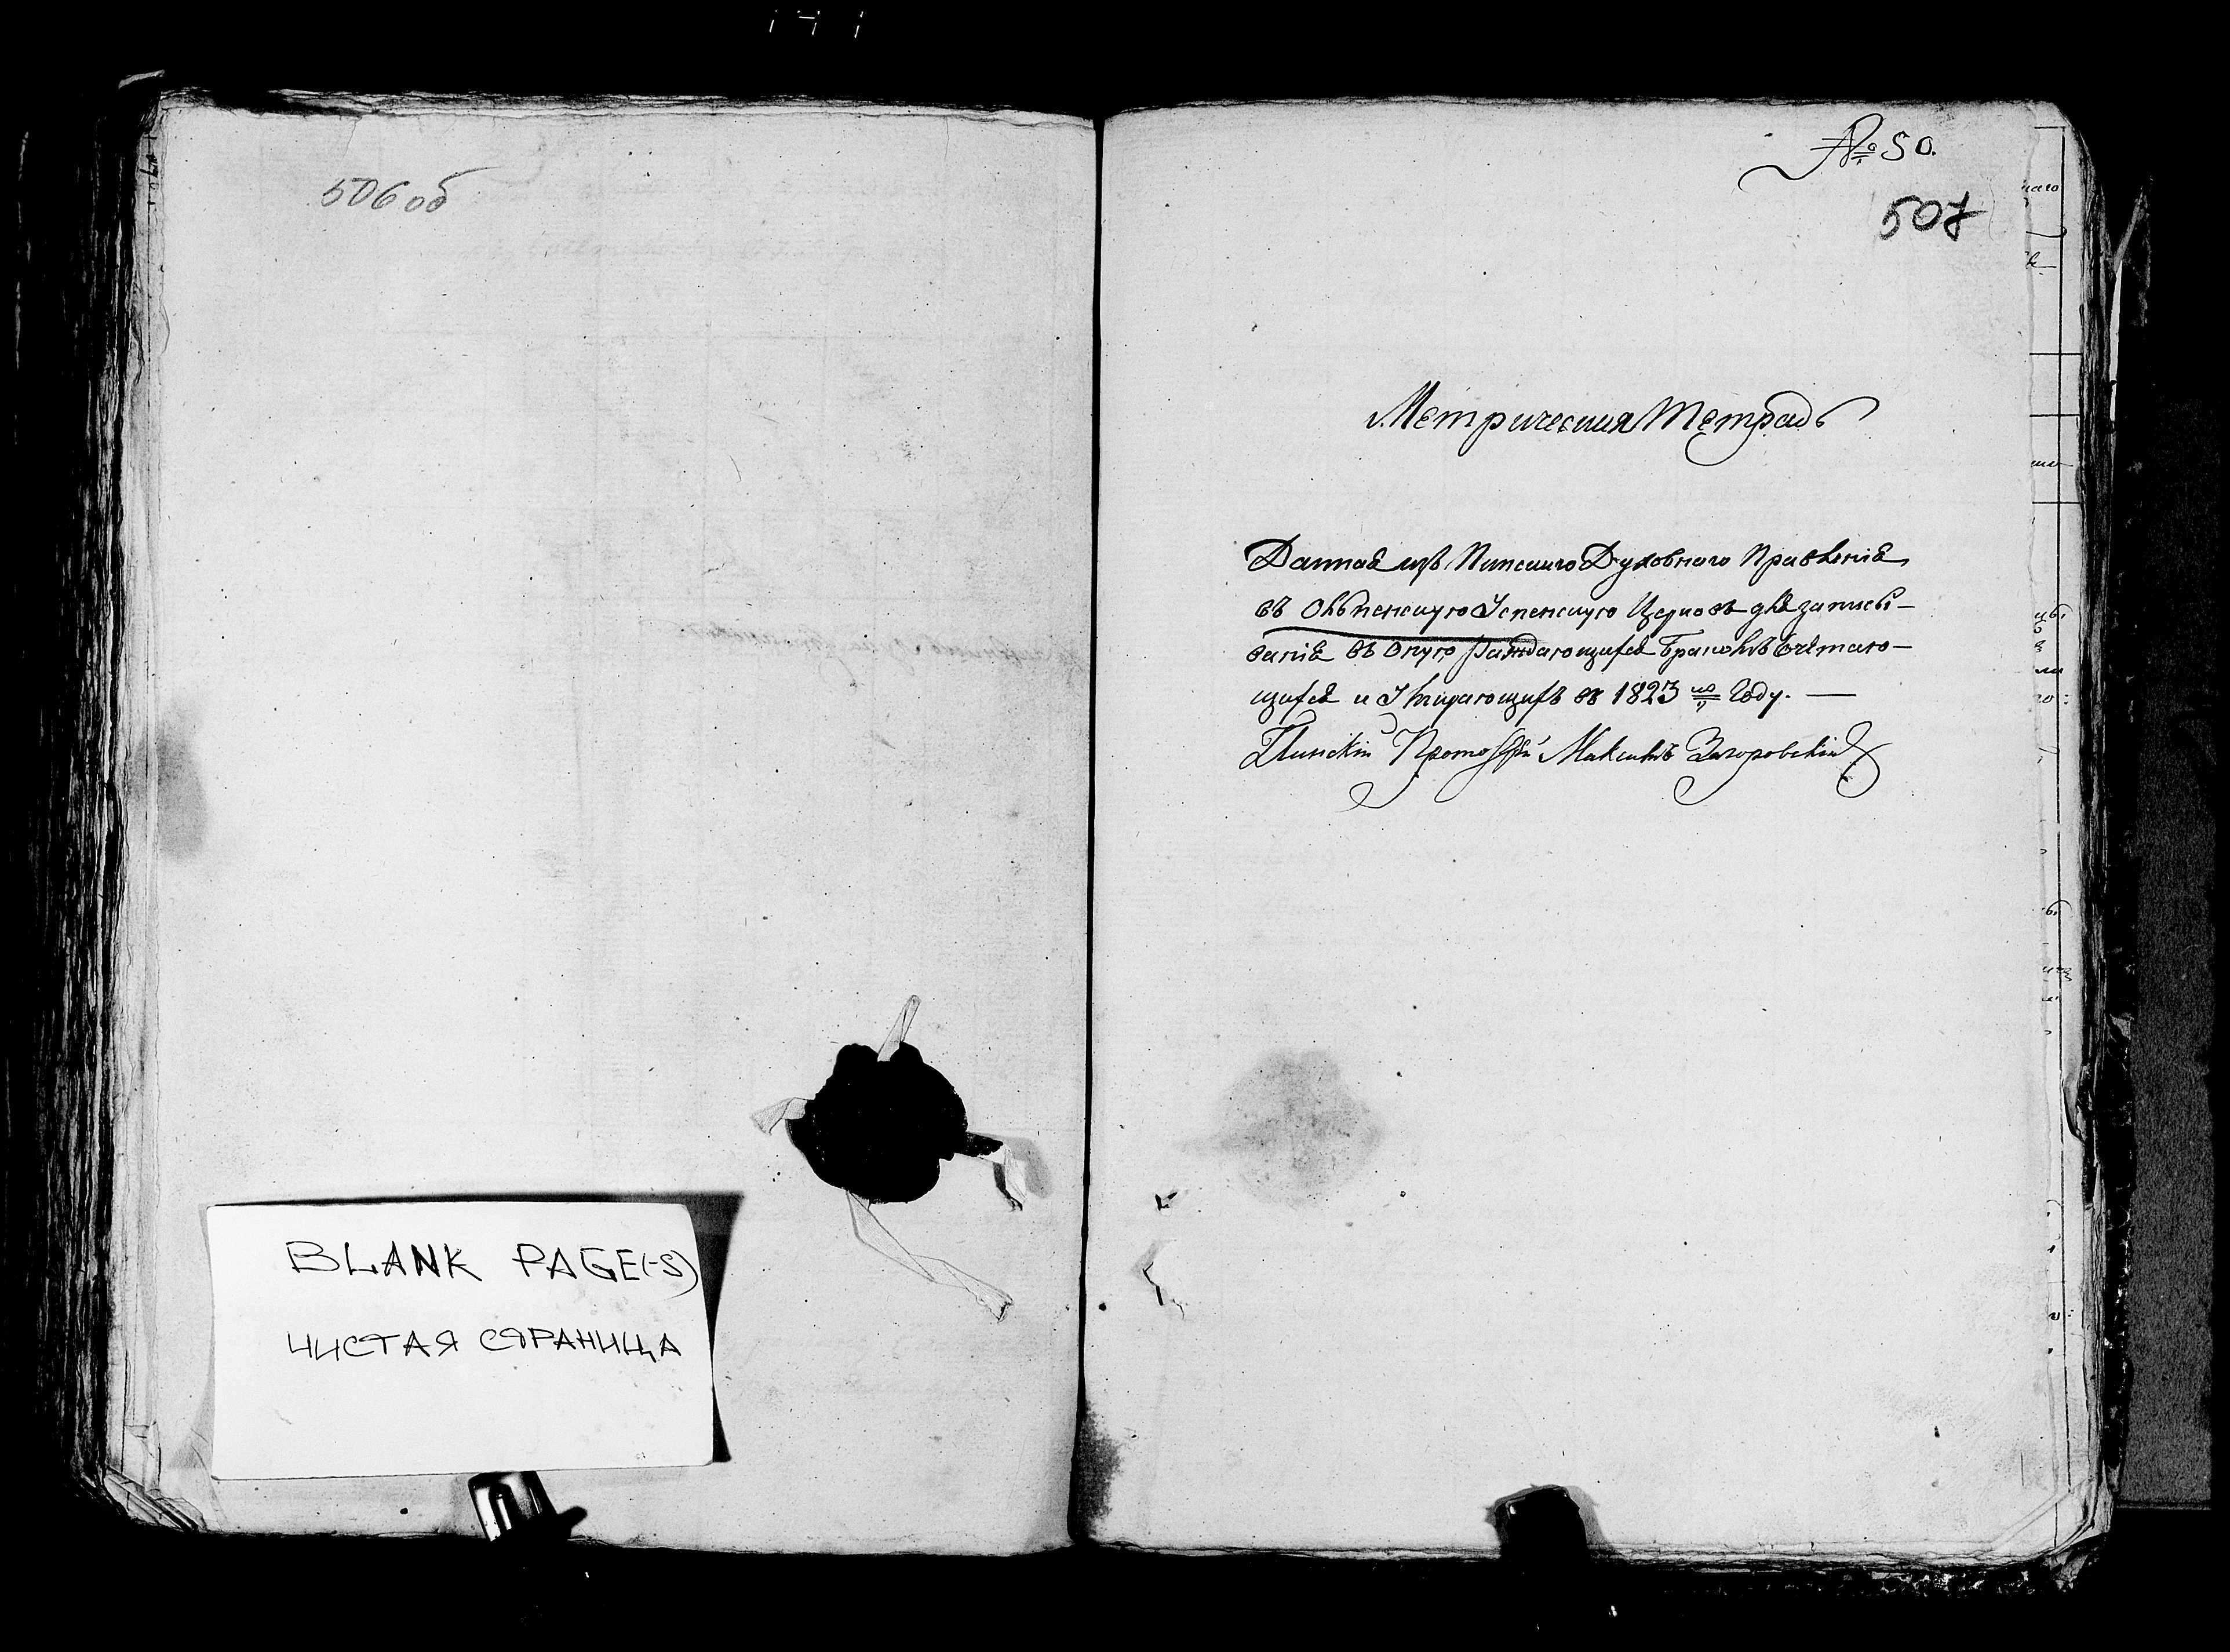 506об
BLANK PAGE(-S)
ЧИСТАЯ СТРАНИЦА
№ 50.
507
Метрическая Тетрадь
Данная изъ Пинскаго Духовнаго Правленія
въ Ольпенскую Успенскую Церковь для записы-
ванія въ оную раждающихся Бракомъ сочетаю-
щихся и Умирающихъ въ 1823 мъ Году. —
Пинскій Прото Максимъ Загоровскій